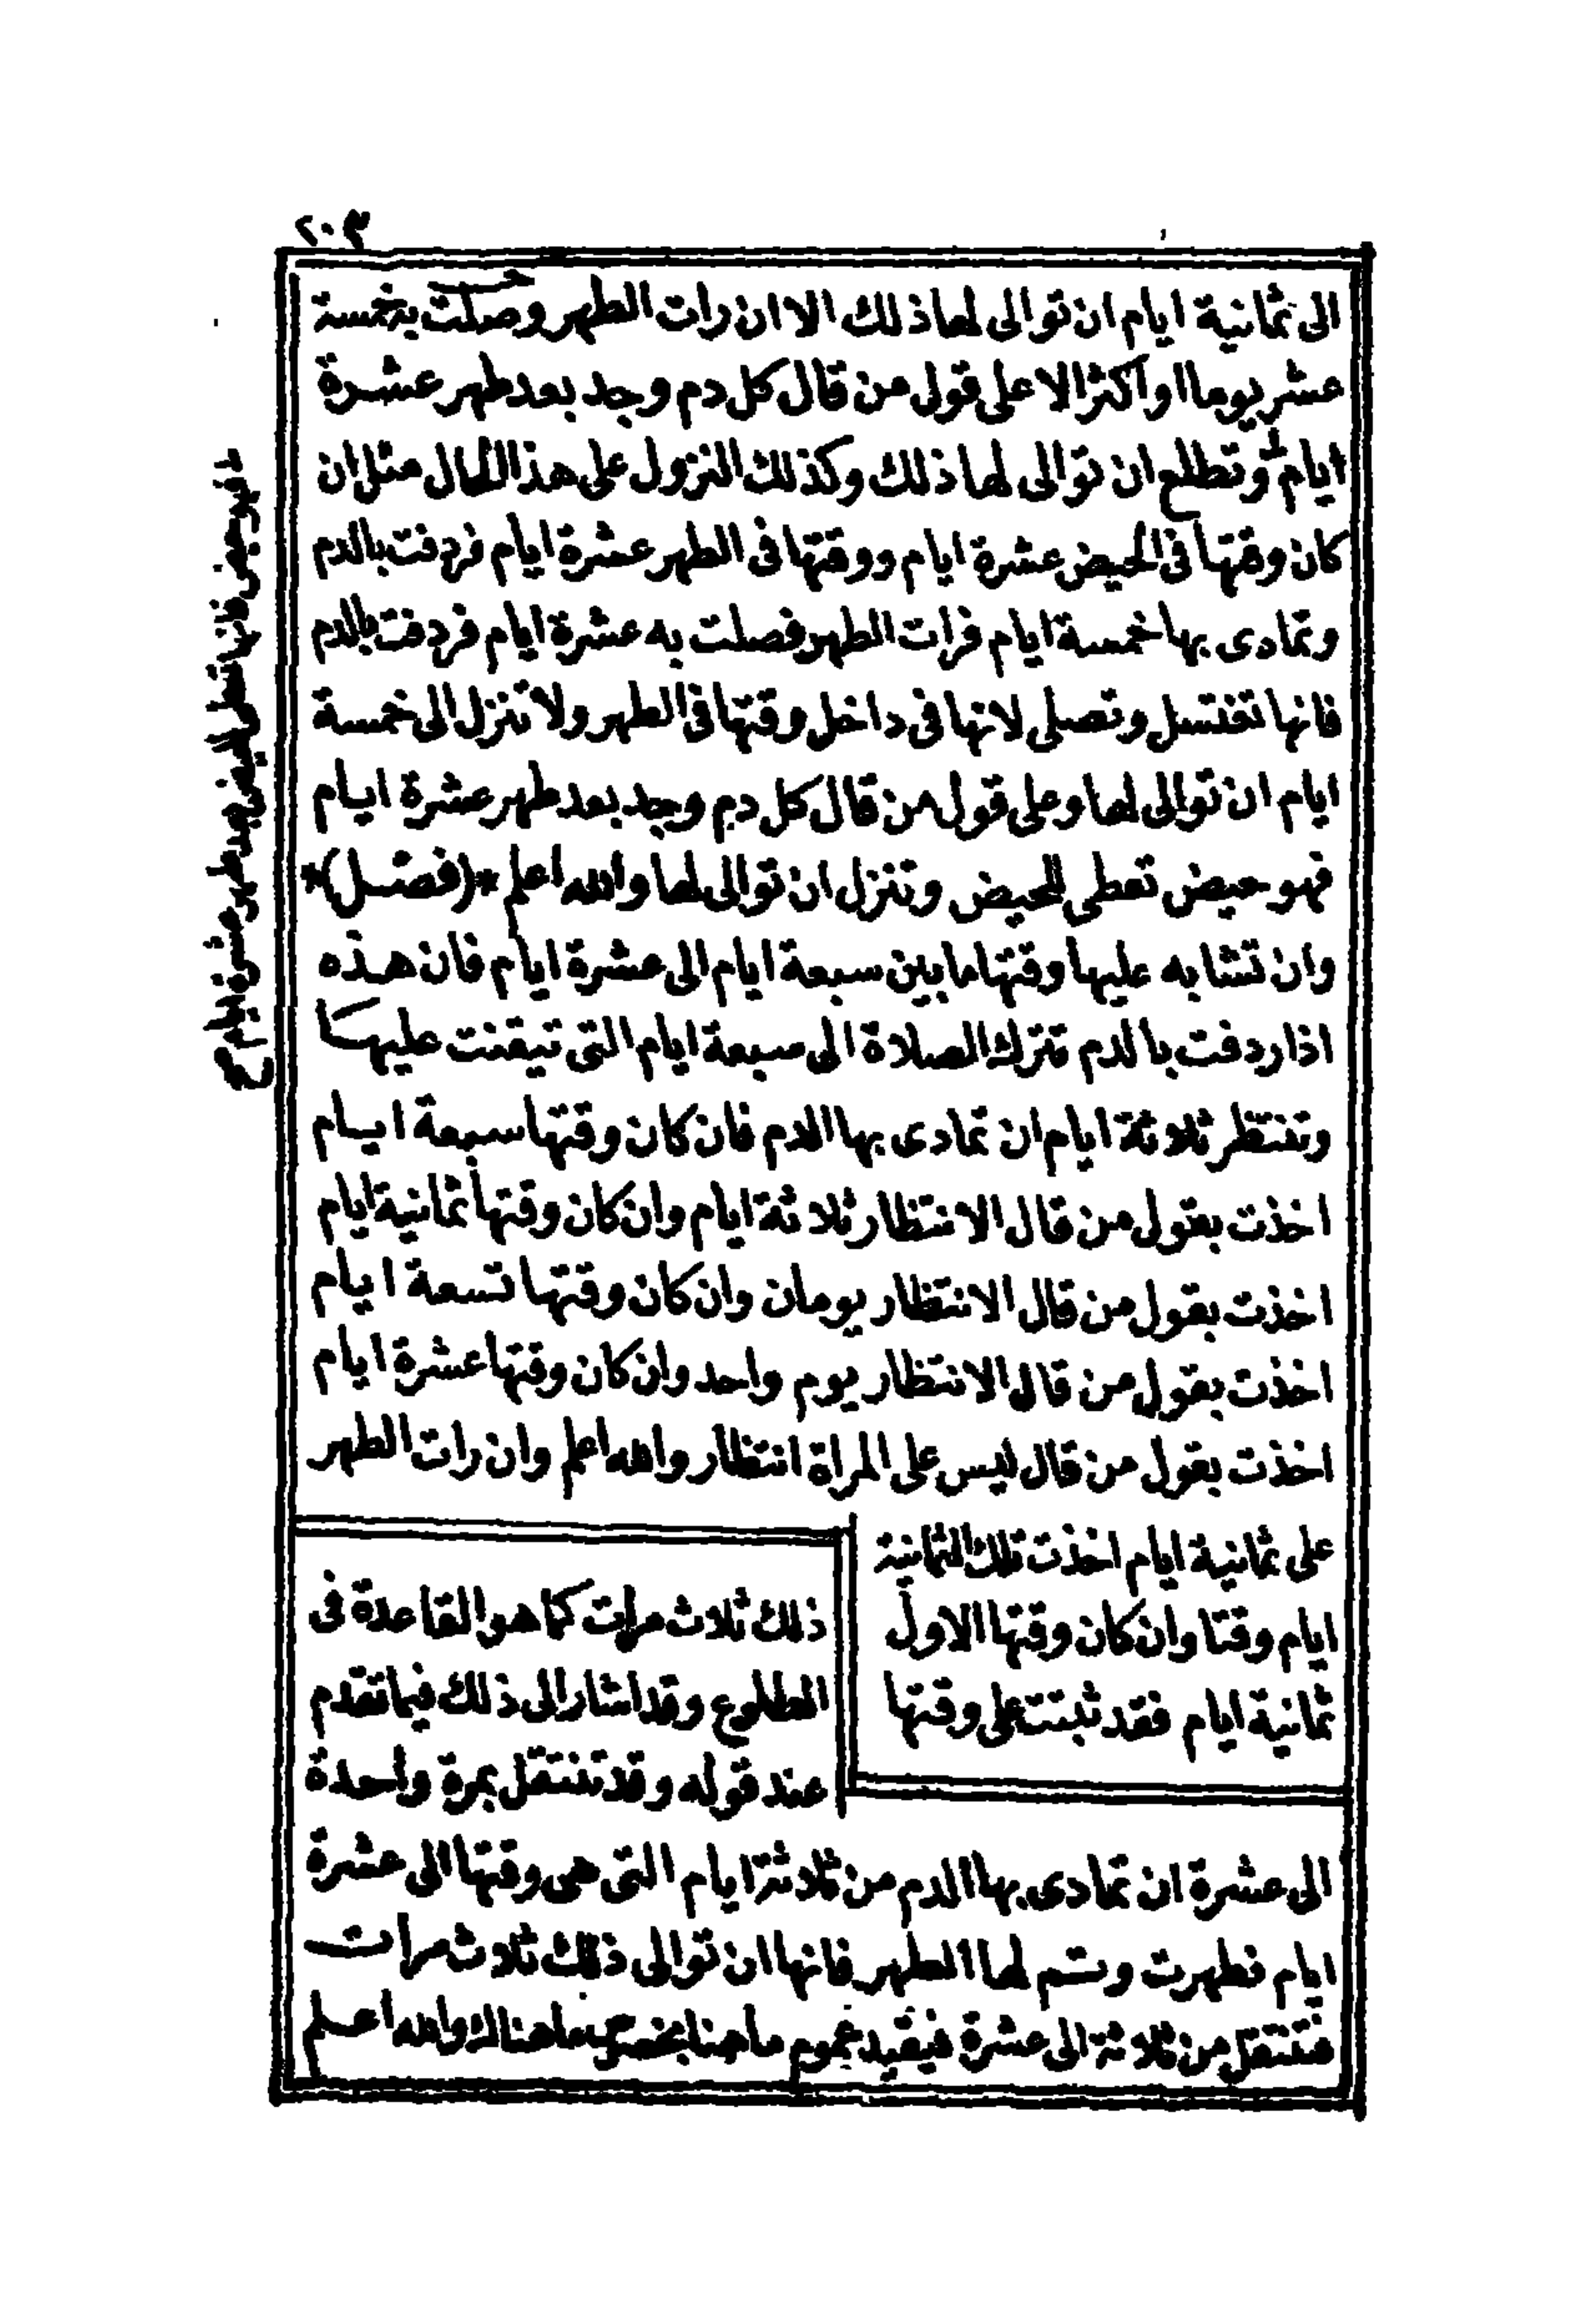 ٢٠٣
الى ثمانية ايام ان توالى لها ذلك الا ان رات الطهر وصلت به خمسة
عشر يوما او اكثر الا على قول من قال كل دم وجد بعد طهر عشرة
ايام وتطلع ان توالى لها ذلك وكذلك النزول على هذا الحال مثل ان
كان وقتها فى الحيض عشرة ايام ووقتها فى الطهر عشرة ايام فردفت بالدم
وتمادى بها خمسة ايام فرات الطهر فصلت به عشرة ايام فردفت بالدم
فانها تغتسل وتصلى لانها فى داخل وقتها فى الطهر ولا تنزل الى خمسة
ايام ان توالى لها وعلى قول من قال كل دم وجد بعد طهر عشرة ايام
فهو حيض تعطى للحيض وتنزل ان توالى لها والله اعلم *(فصل)*
وان تشابه عليها وقتها ما بين سبعة ايام الى عشرة ايام فان هذه
اذا ردفت بالدم تترك الصلاة الى سبعة ايام التى تيقنت عليها
وتنتظر ثلاثة ايام ان تمادى بها الدم فان كان وقتها سبعة ايام
اخذت بقول من قال الانتظار ثلاثة ايام وان كان وقتها ثمانية ايام
اخذت بقول من قال الانتظار يومان وان كان وقتها تسعة ايام
اخذت بقول من قال الانتظار يوم واحد وان كان وقتها عشرة ايام
اخذت بقول من قال ليس على المراة انتظار والله اعلم وان رات الطهر
على ثمانية ايام اخذت تلك الثمانية
ايام وقتا وان كان وقتها الاول
ثمانية ايام فقد ثبتت على وقتها
ذلك ثلاث مرات كما هو القاعدة فى
الطلوع وقد اشار الى ذلك فيما تقدم
عند قوله وقد تنتقل بمرة واحدة
الى عشرة ان تمادى بها الدم من ثلاثة ايام التى هى وقتها الى عشرة
ايام فطهرت وتم لها الطهر فانها ان توالى ذلك ثلاث مرات
فتنتقل من ثلاثة الى عشرة فيقيد عموم ما هنا بخصوص ما هناك والله اعلم